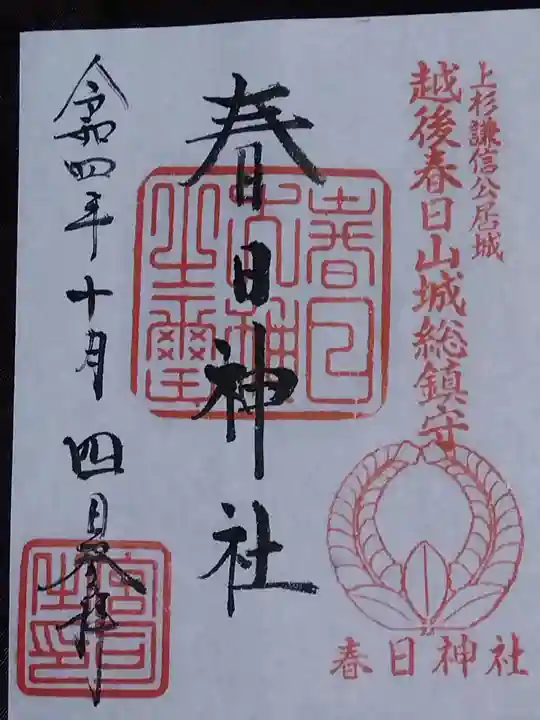 上杉謙信公居城
越後春日山城総鎮守
春日神社
春日神社
春日
大神
之璽
令和四年十月四日奉拝
宮司
之印